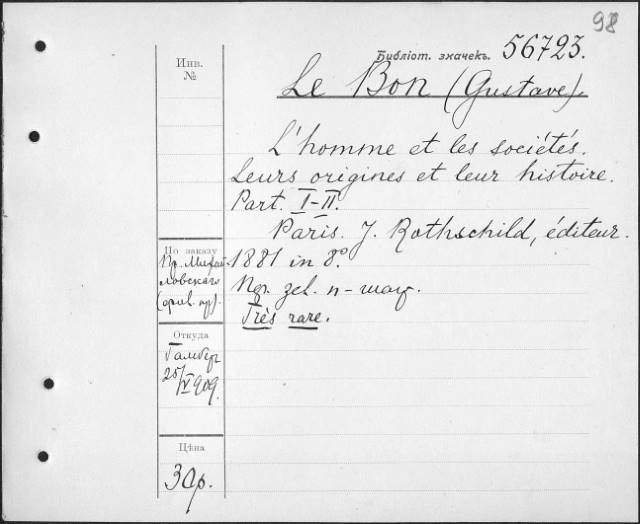 98
Инв.
№
Библіот. значекъ. 56723.
Le Bon (Gustave).
L'homme et les sociétés.
Leurs origines et leur histoire.
Part. I-II.
Paris. J. Rothschild, éditeur.
1881 in 8º.
Très rare.
По заказу
ловскаго
Откуда
25/V 909.
Цѣна
30р.